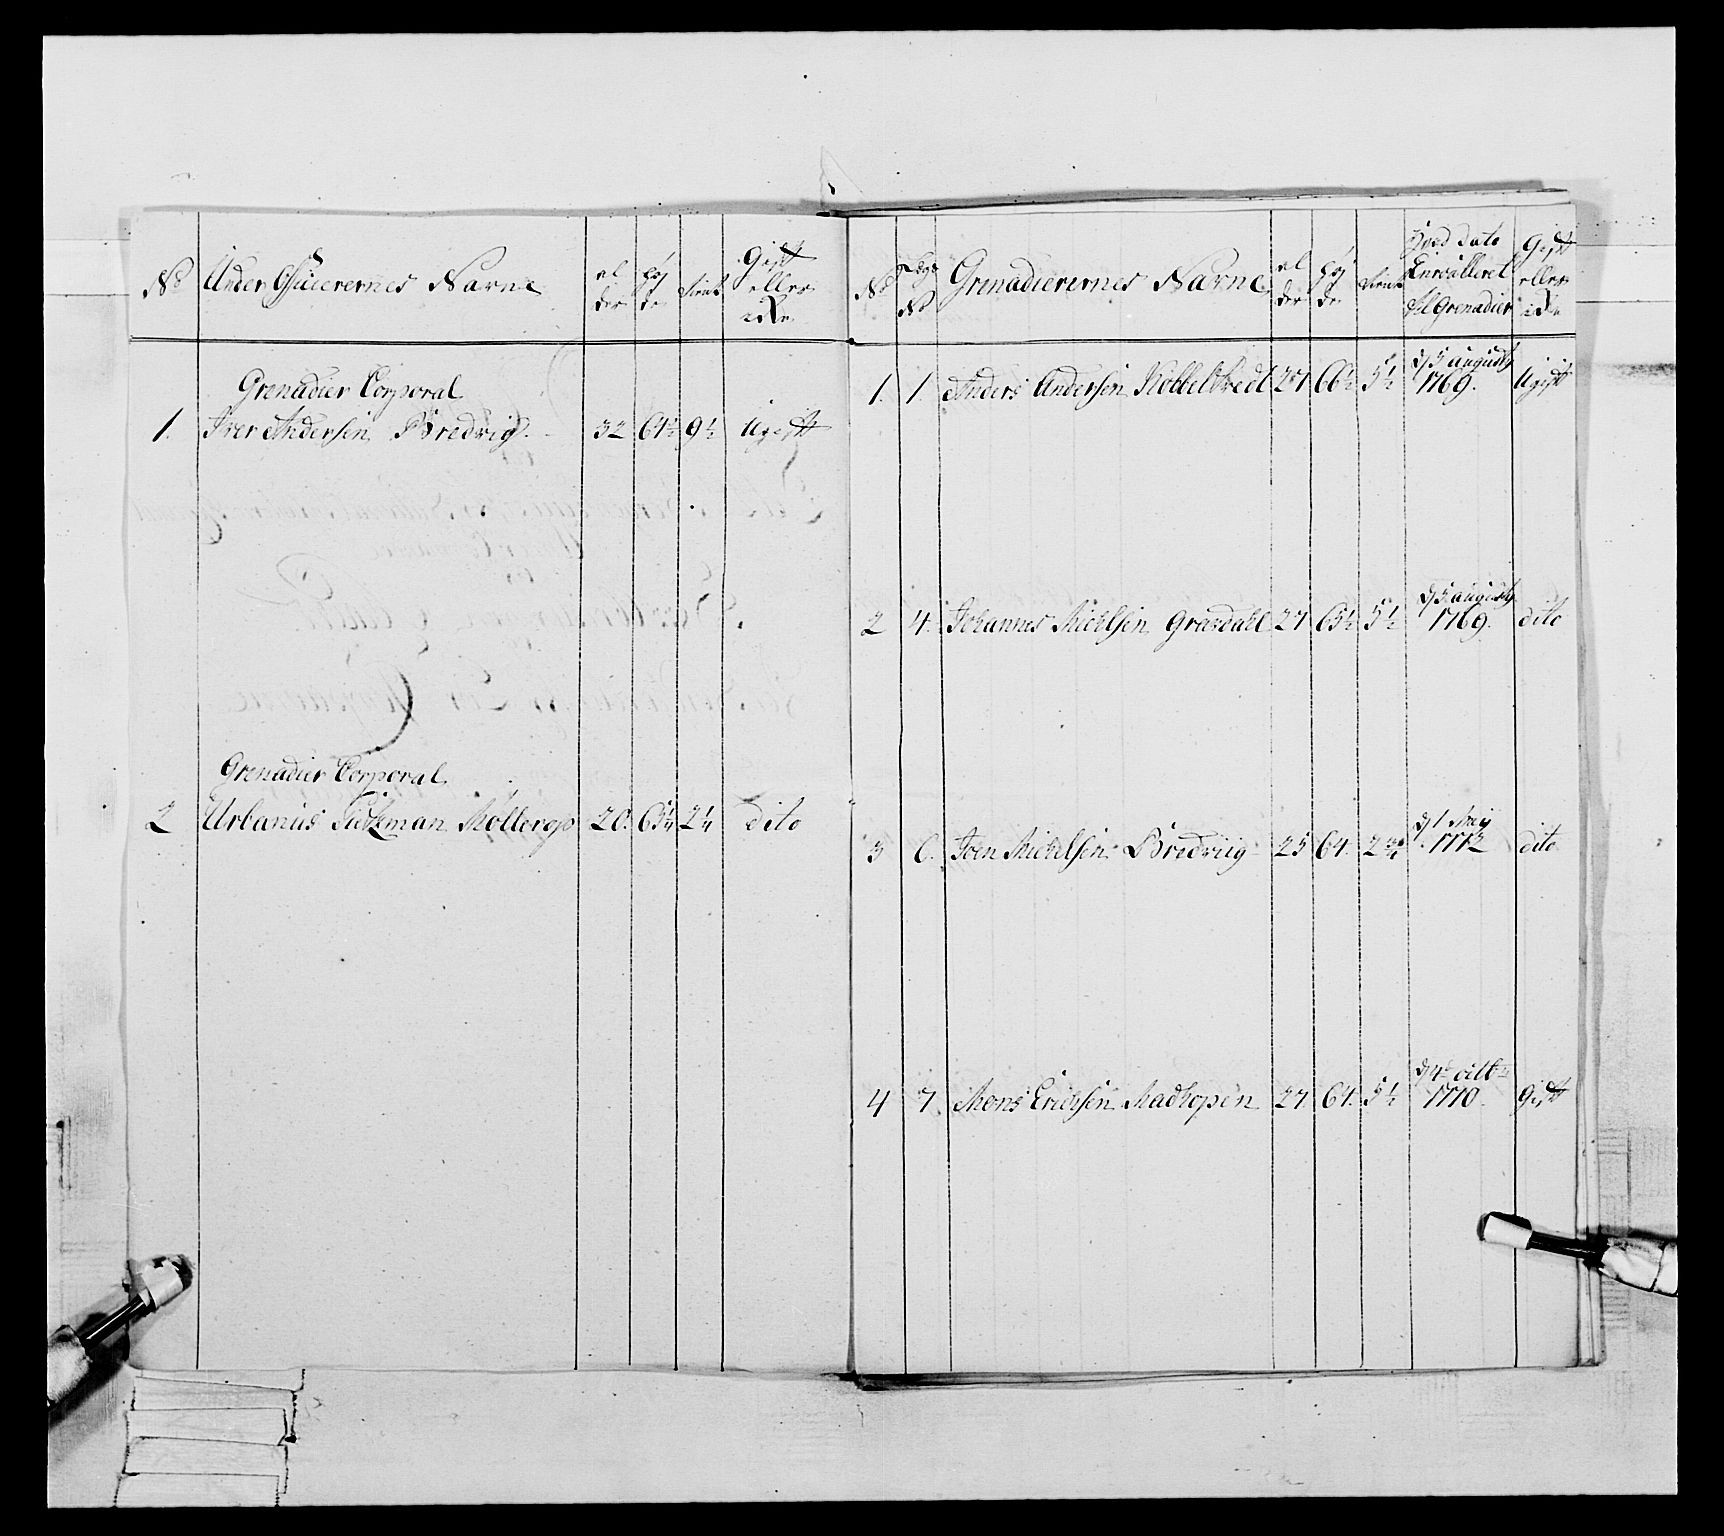 No Under Officerernes Nafne al der høj de tient Gift eller icke
Grenadier Corporal
1. Iver Andersen Bredvig. 32 64½ 9½ Ugift
Grenadier Corporal
2 Urbanus Møllerop 20. 65¼ 2¼ dito
No Lægs No Grenadierernes Nafne al der høj de tient Hvad dato Enroulleret til Grenadier Gift eller icke
1. 1. Anders Andersen Kobbeltvedt 27 66½ 5½ d 5 augusty 1769. Ugift
2 4. Johannes Michelsen Grasdahl 27 65½ 5½ d 5 augusty 1769. dito
3 6. Joen Michelsen Bredvig 25 64. 2¾ d 1 May 1772 dito
4 7. Mons Erichsen Madhopen 27. 64. 5½ d 4 octb 1770. Gift